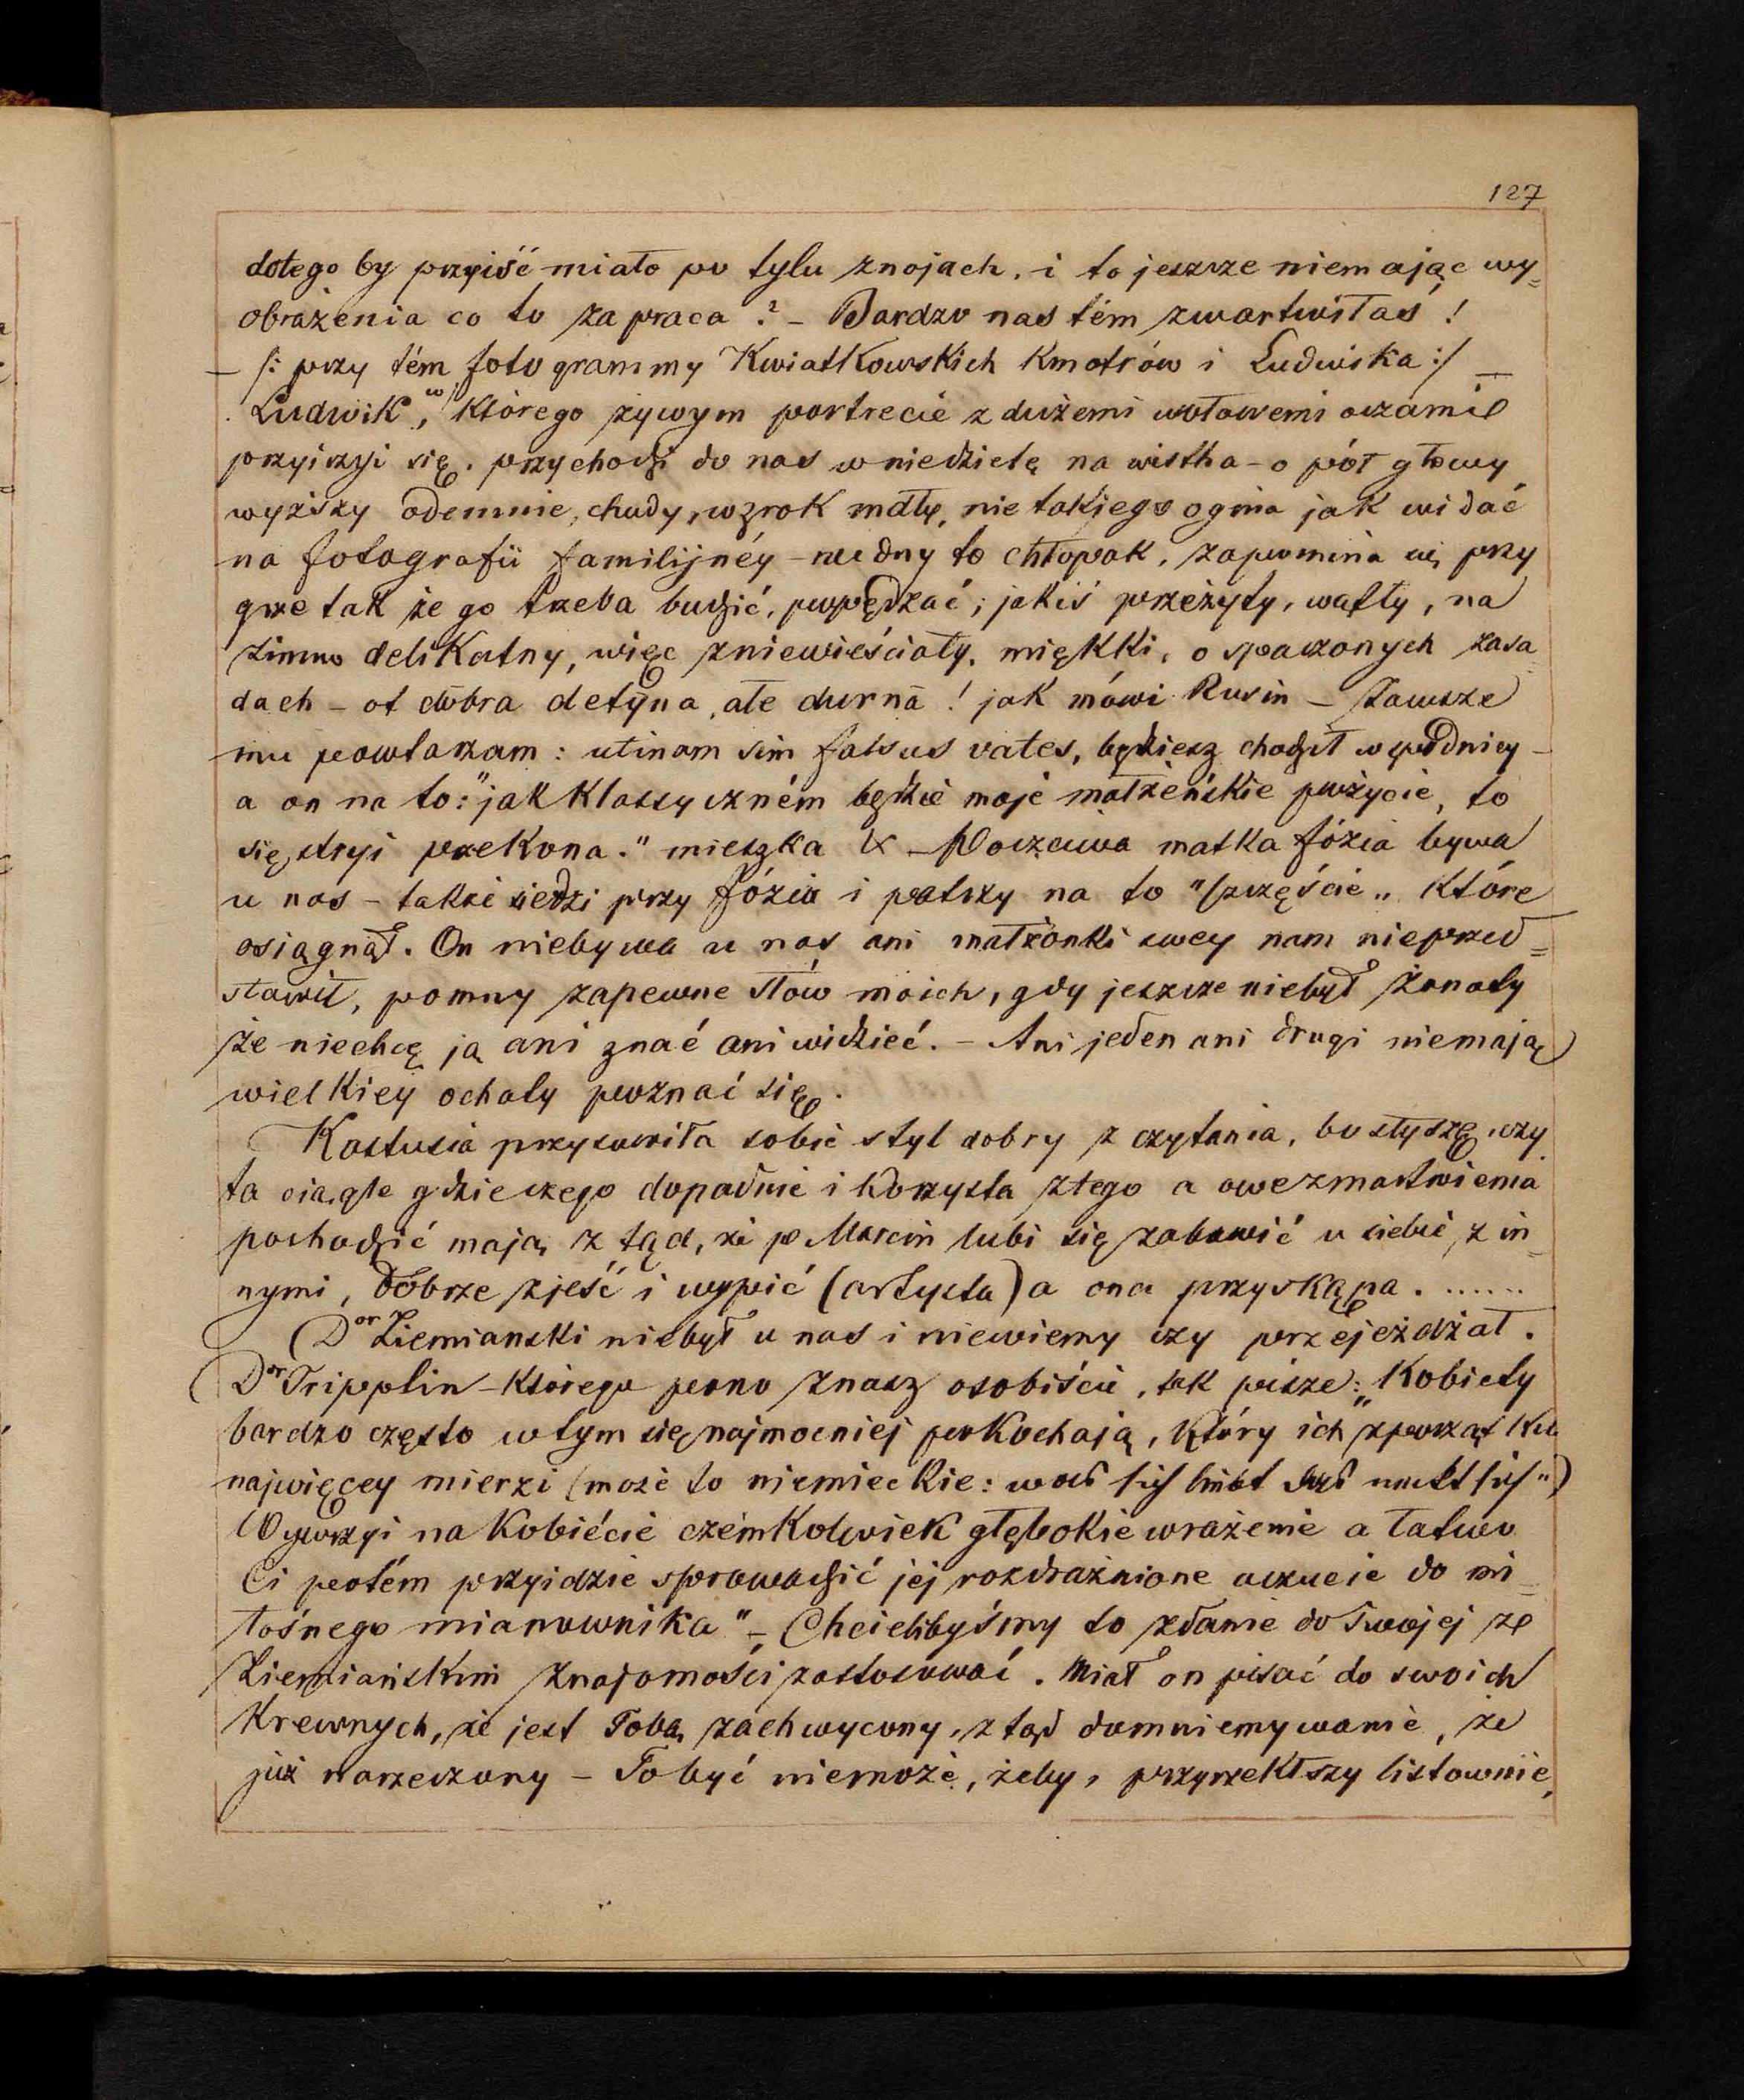 127
dotego by przyiść miało po tylu znojach, i to jeszcze niemając wy=
obrażenia co to za praca? – Bardzo nas tém zmartwiłaś!
– /: przy tém fotogrammy Kwiatkowskich Kmotrów i Ludwika :/ –
Ludwik, w którego żywym portrecie z dużemi wołowemi oczami
przyirzyi się. przychodzi do nas w niedzielę na wistha – o pół głowy
wyższy odemnie, chudy, wzrok mdły, nie takiego ognia jak widać
na fotografii familijnéy – nudny to chłopak, zapomina się przy
grze tak że go trzeba budzić, popędzać; jakiś przeżyty, wątły, na
zimno delikatny, więc zniewieściały, miękki, o spaczonych zasa
dach – ot dobra detyna, ale durna! jak mówi Rusin – Zawsze
mu powtarzam: utinam sim falsus vates, będziesz chodził w spódnicy –
a on na to: "jak klassyczném będzie moje małżeńskie pożycie, to
się stryi przekona." mieszka – Poczciwa matka Józia bywa
u nas – także siedzi przy Józiu i patrzy na to "szczęście" które
osiągnął. On niebywa u nas ani małżonki swey nam nieprzed=
stawił, pomny zapewne słów moich, gdy jeszcze niebył żonaty
że niechcę ją ani znać ani widzieć. – Ani jeden ani drugi niemają
wielkiey ochoty poznać się.
Kostusia przyswoiła sobie styl dobry z czytania, bo słyszę czy
ta ciągle gdzie czego dopadnie i korzysta ztego a owe zmartwienia
pochodzić mają z tąd, że p Marcin lubi się zabawić u siebie z in
nymi, dobrze zjeść i wypić (artysta) a ona przyskąpa. ......
(Dor Ziemianski niebył u nas i niewiemy czy przejeżdżał.
(Dor Tripplin – którego pono znasz osobiście, tak pisze: "Kobiety
bardzo często w tym się najmocniej pokochają, który ich zpoczątku
najwięcey mierzi (może to niemieckie: was sich liebt das neckt sich")
Wywrzyi na kobiécie czémkolwiek głębokie wrażenie a łatwo
Ci potém przyidzie sprowadzić jej rozdrażnione uczucie do mi=
łośnego mianownika" – Chcielibyśmy to zdanie do Twojej ze
Ziemiańskim znajomości zastosować. Miał on pisać do swoich
Krewnych, że jest Tobą zachwycony, ztąd domniemywanie, że
już narzeczony – To być niemoże, żeby, przyrzekłszy listownie,